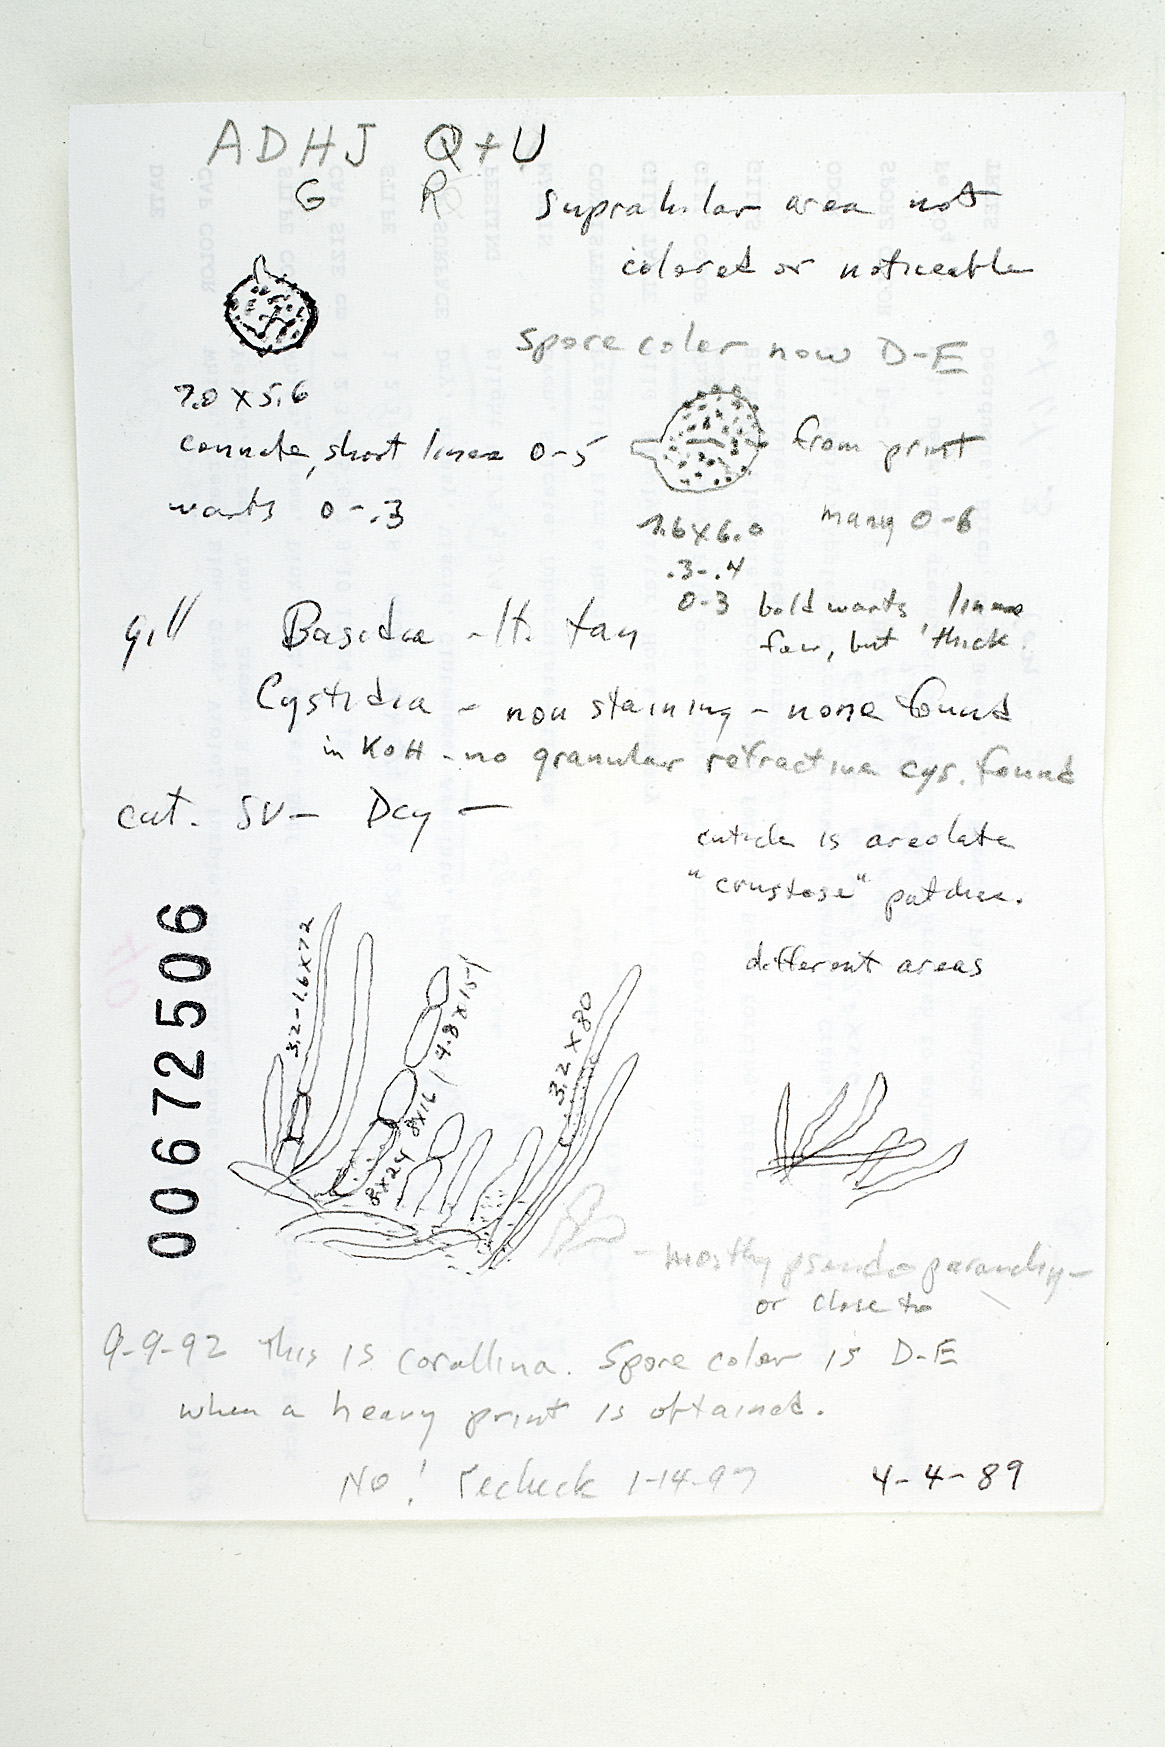 ADHJ Q+U
G R
suprahilar area not
colored or noticeable
spore color now D-E
7.0 x 5.6
connate, short lines 0-5
warts 0-.3
from print
7.6 x 6.0
many 0-6
.3-.4
0-3 bold warts, lines
few, but thick.
gill Basidia - lt. tan
Cystidia - non staining - none found
in KOH - no granular refractive cys. found
cut. SV- Dcy -
cuticle is areolate
"crustose" patches.
different areas
00672506
3.2-1.6x72
4.8x15
8x16
8x24
3.2x80
- mostly pseudoparenchy-
or close to
9-9-92 This is corallina. Spore color is D-E
when a heavy print is obtained.
No! recheck 1-14-97
4-4-89
DATE
CAP COLOR
STIPE CO
CAP SIZE cm
STIPE
SURFACE
SPORE COLOR